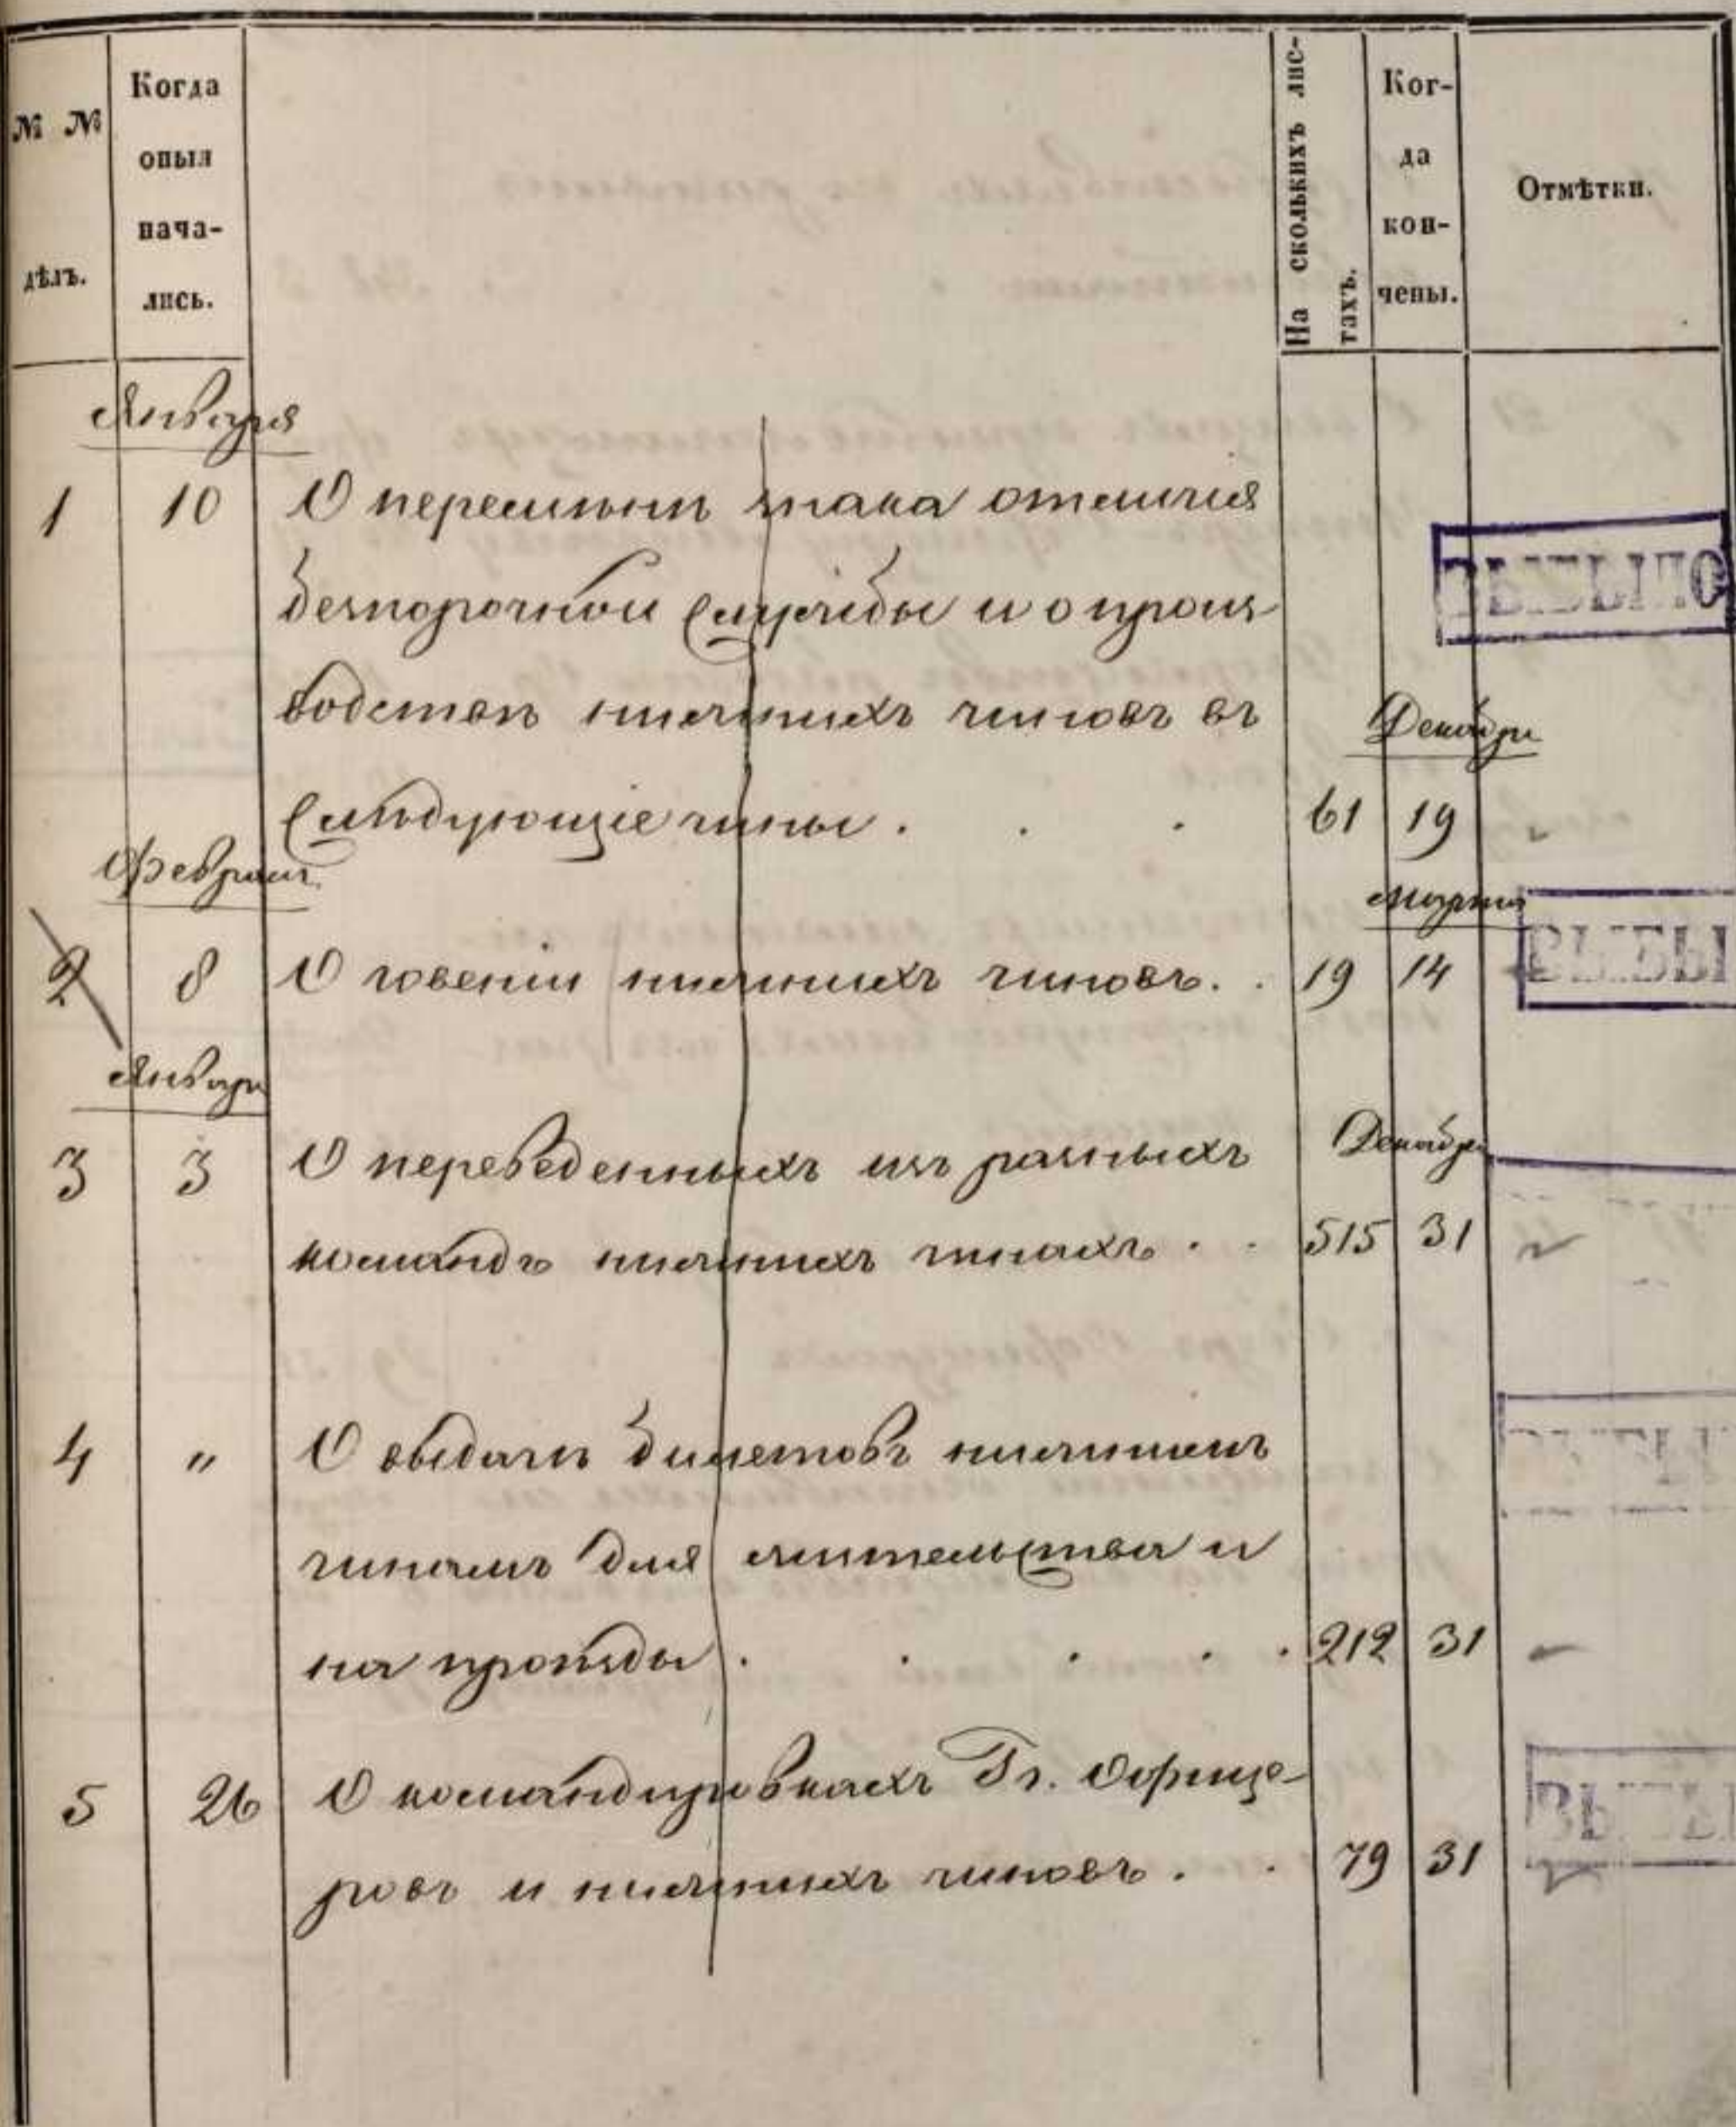 № №
дѣлъ.
Когда
оныя
нача-
лись.
На сколькихъ лис-
тахъ.
Ког-
да
кон-
чены.
Отмѣтки.
Января
1 10 О перемѣнѣ знака отличія
безпорочной службы и о произ-
водствѣ нижнихъ чиновъ въ
Декабря
слѣдующіе чины . . . 61 19
Февраля
Марта
2 8 О говеніи нижнихъ чиновъ . . 19 14
Января
Декабря
3 3 О переведенныхъ изъ разныхъ
командъ нижнихъ чинахъ . . 515 31
4 " О выдачѣ билетовъ нижнимъ
чинамъ для жительства и
на проѣзды . . . . . 212 31
5 26 О командировкахъ Гг. Офице-
ровъ и нижнихъ чиновъ . . 79 31
ВЫБЫЛО
ВЫБЫ